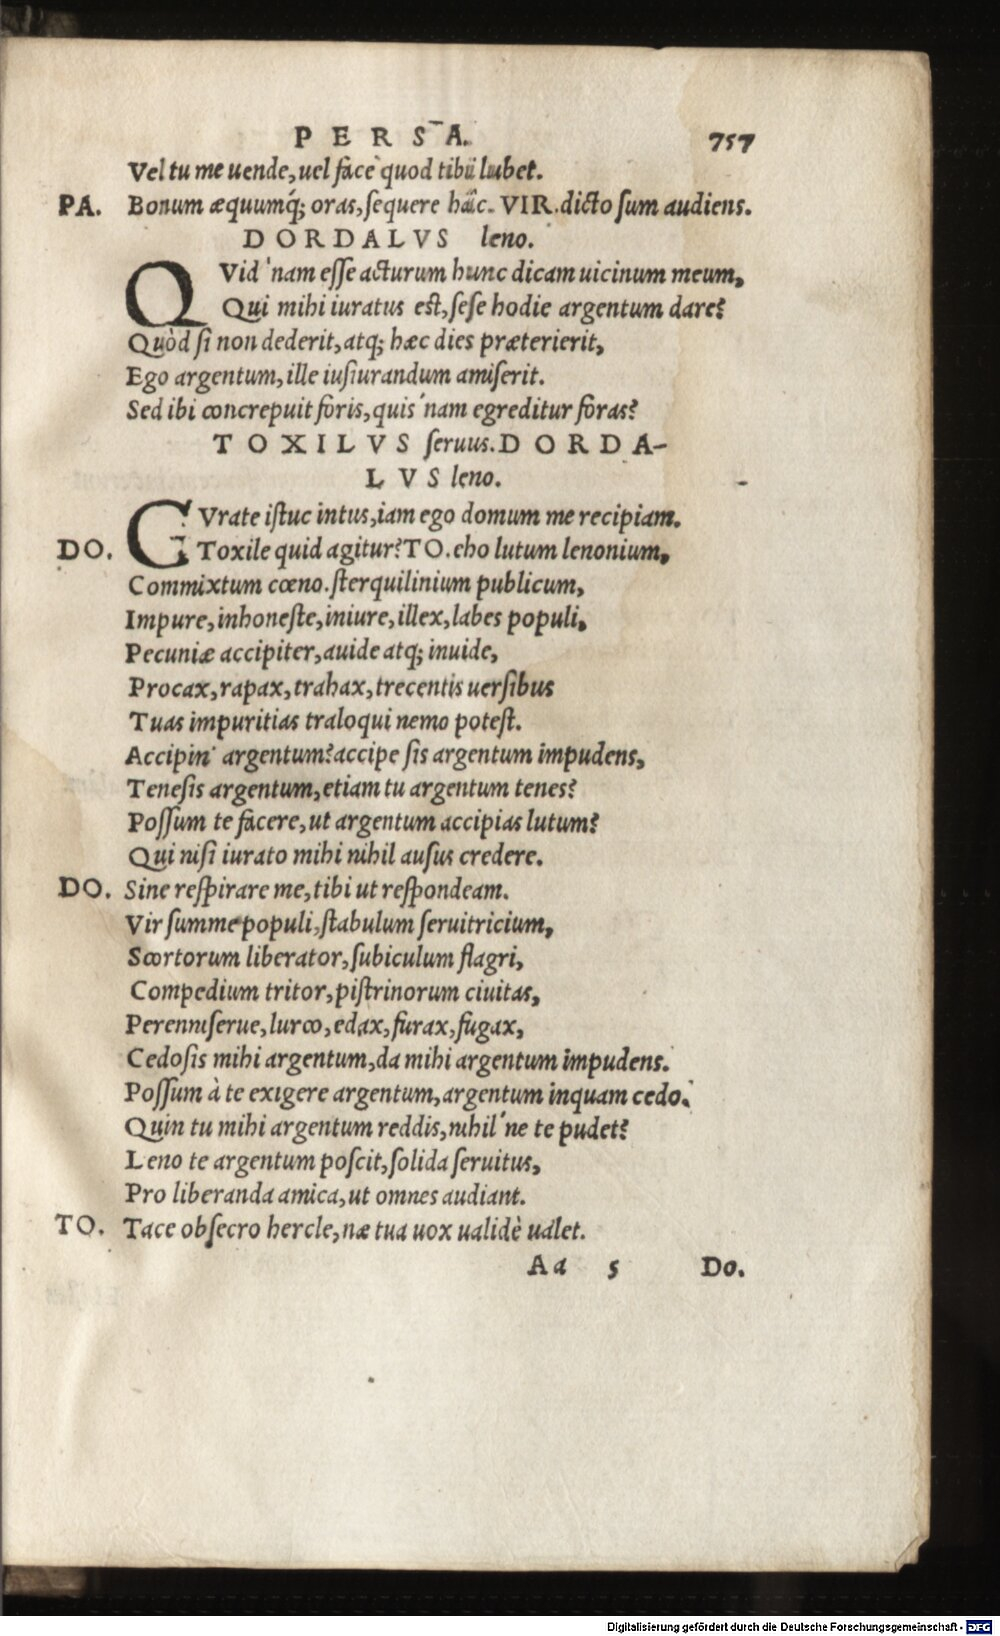 PERSA. 757
Vel tu me uende, uel face quod tibi lubet.
PA. Bonum æquumq́; oras, sequere hâc. VIR. dicto sum audiens.
DORDALVS leno.
QVid'nam esse acturum hunc dicam uicinum meum,
Qui mihi iuratus est, sese hodie argentum dare?
Quòd si non dederit, atq; hæc dies præterierit,
Ego argentum, ille iusiurandum amiserit.
Sed ibi concrepuit foris, quis'nam egreditur foras?
TOXILVS seruus. DORDA-
LVS leno.
CVrate istuc intus, iam ego domum me recipiam.
DO. Toxile quid agitur? TO. eho lutum lenonium,
Commixtum cœno. sterquilinium publicum,
Impure, inhoneste, iniure, illex, labes populi,
Pecuniæ accipiter, auide atq; inuide,
Procax, rapax, trahax, trecentis uersibus
Tuas impuritias traloqui nemo potest.
Accipin' argentum? accipe sis argentum impudens,
Tenesis argentum, etiam tu argentum tenes?
Possum te facere, ut argentum accipias lutum?
Qui nisi iurato mihi nihil ausus credere.
DO. Sine respirare me, tibi ut respondeam.
Vir summe populi, stabulum seruitricium,
Scortorum liberator, subiculum flagri,
Compedium tritor, pistrinorum ciuitas,
Perenniserue, lurco, edax, furax, fugax,
Cedosis mihi argentum, da mihi argentum impudens.
Possum à te exigere argentum, argentum inquam cedo.
Quin tu mihi argentum reddis, nihil'ne te pudet?
Leno te argentum poscit, solida seruitus,
Pro liberanda amica, ut omnes audiant.
TO. Tace obsecro hercle, næ tua uox ualidè ualet.
Aa 5 Do.
Digitalisierung gefördert durch die Deutsche Forschungsgemeinschaft - DFG